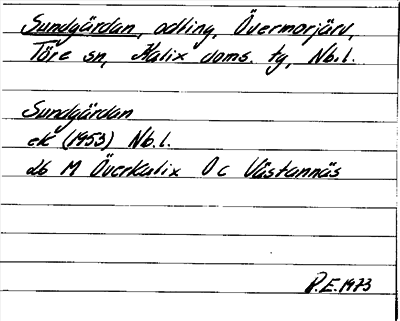 Sundgärdan, odling, Övermorjärv,
Töre sn, Kalix doms. tg, Nb.l.
Sundgärdan
ek (1953) Nb.l.
db M Överkalix O c Västannäs
P.E. 1973